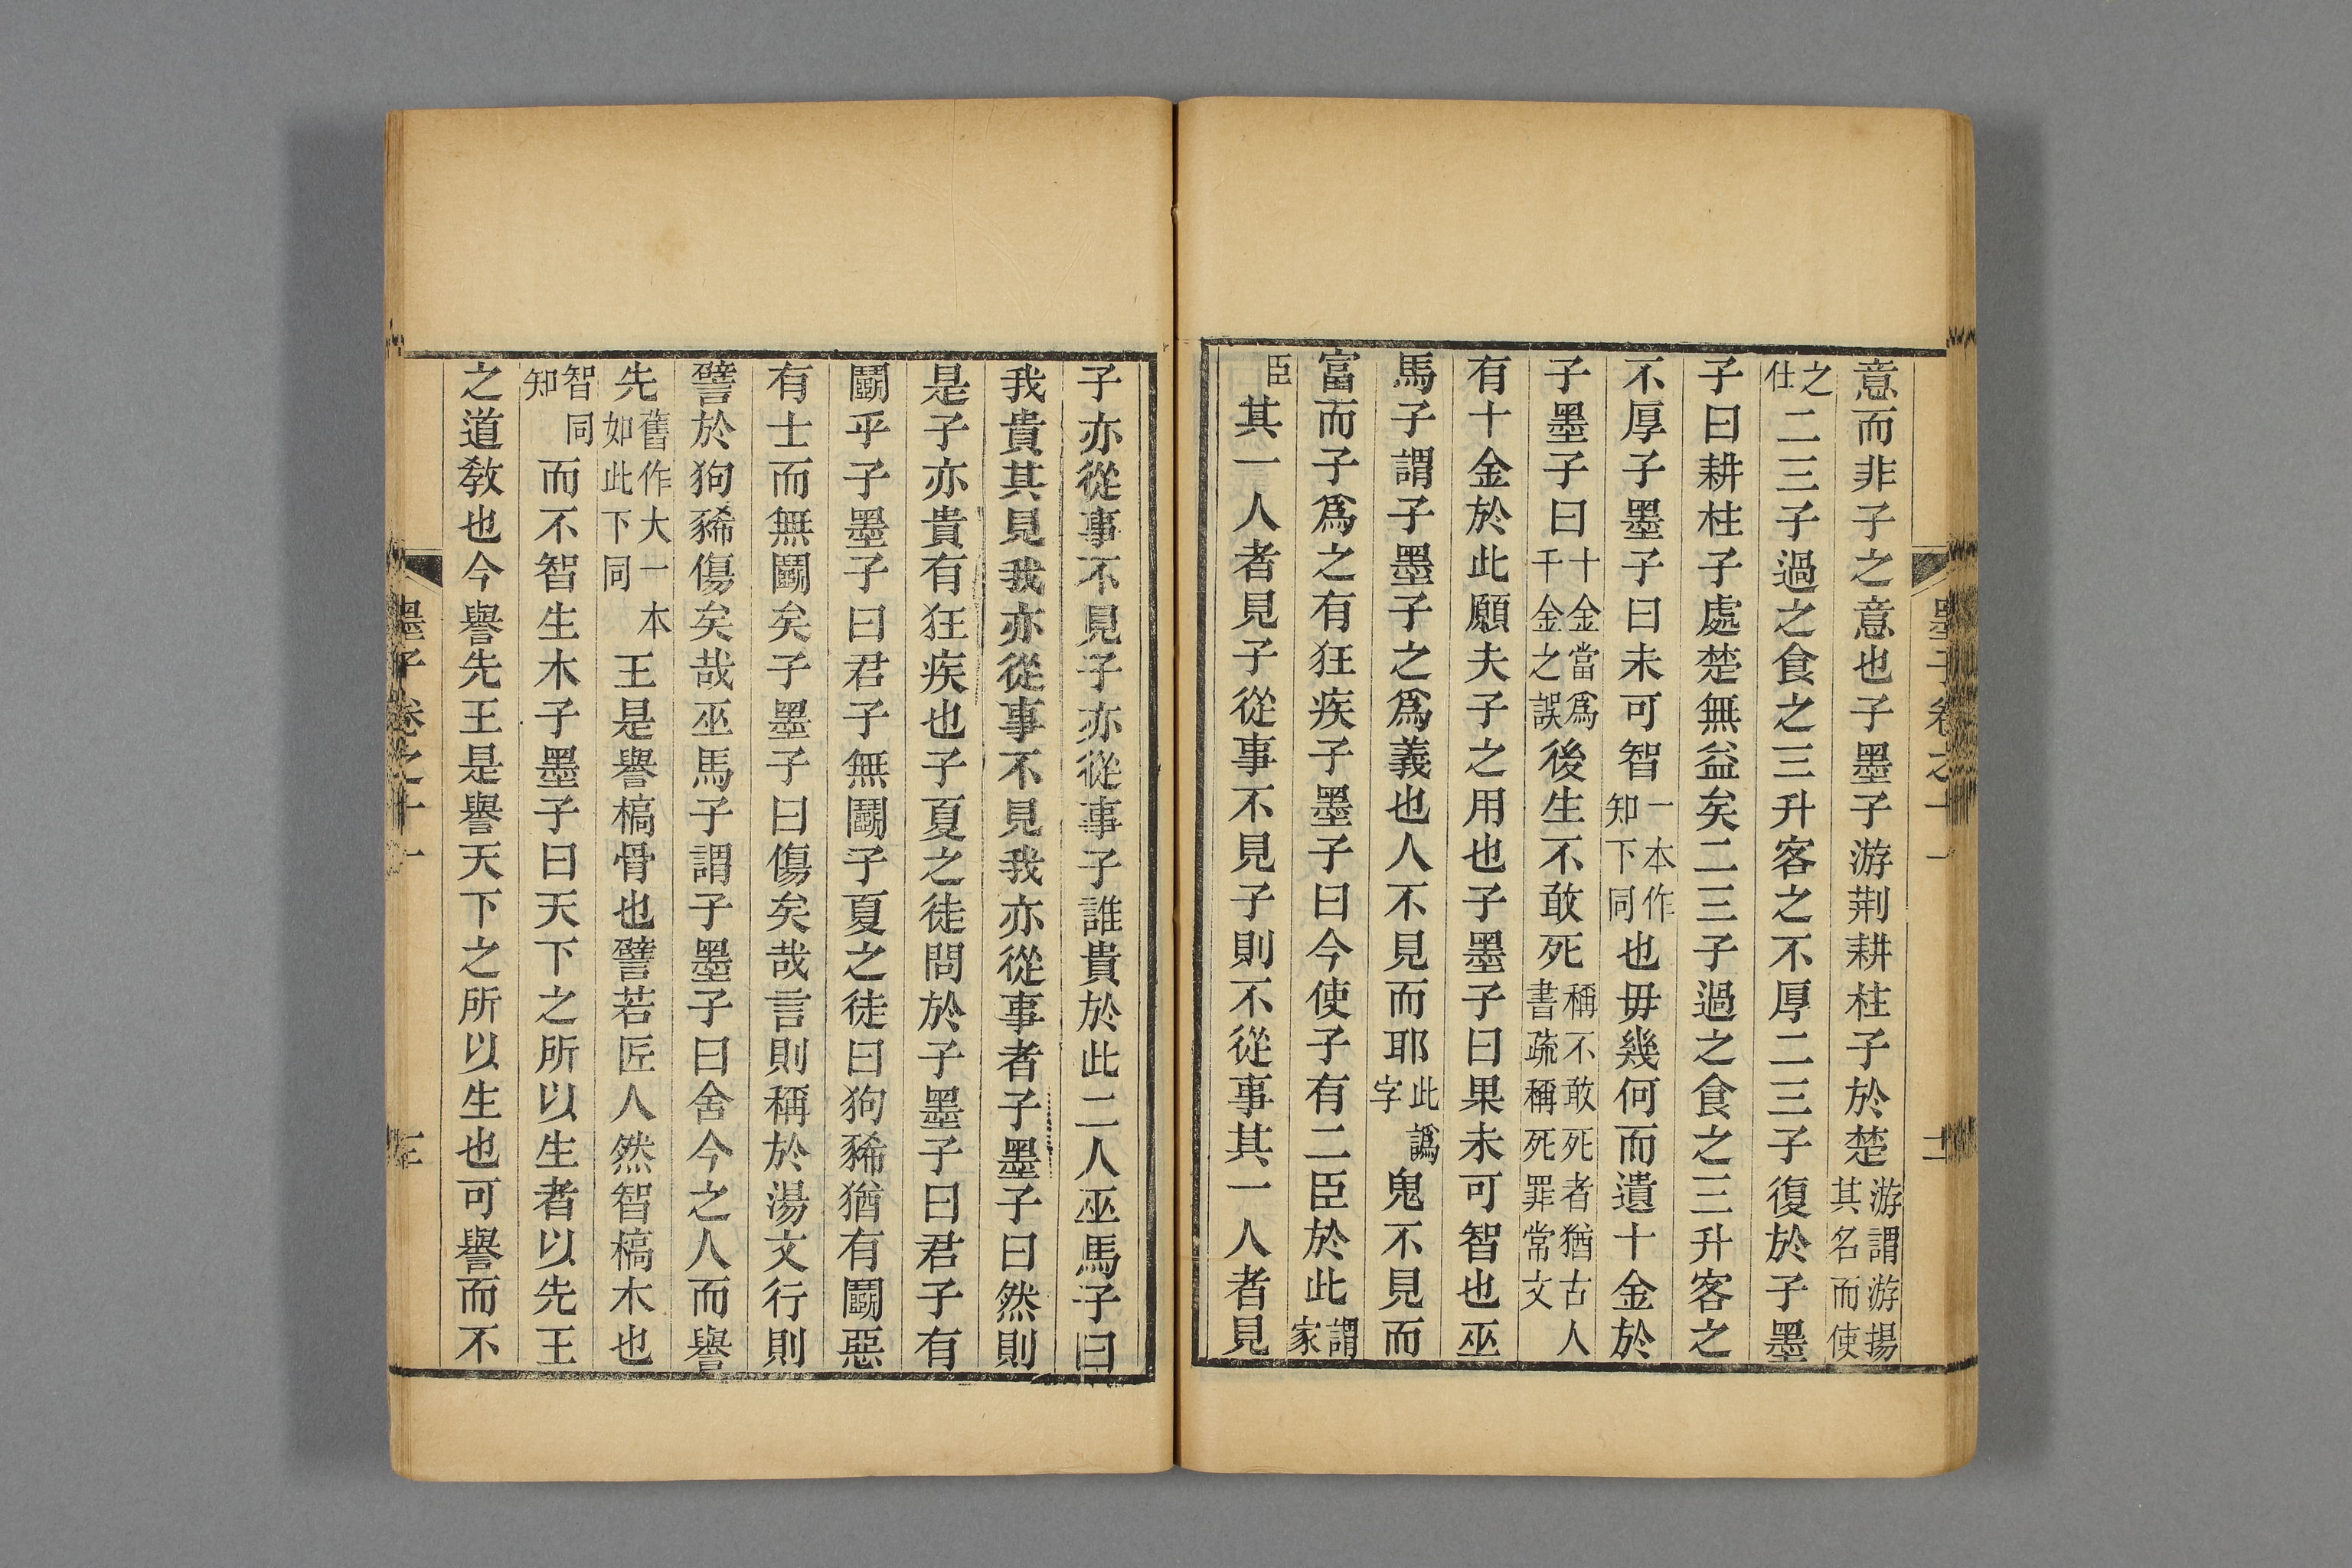 意而非子之意也子墨子游荆耕柱子於楚游謂游揚其名而使
之仕二三子過之食之三升客之不厚二三子復於子墨
子曰耕柱子處楚無益矣二三子過之食之三升客之
不厚子墨子曰未可智一本作知下同也毋幾何而遺十金於
子墨子曰十金當爲千金之誤後生不敢死稱不敢死者猶古人書疏稱死罪常文
有十金於此願夫子之用也子墨子曰果未可智也巫
馬子謂子墨子之爲義也人不見而耶此譌字鬼不見而
富而子爲之有狂疾子墨子曰今使子有二臣於此謂家
臣其一人者見子從事不見子則不從事其一人者見
子亦從事不見子亦從事子誰貴於此二人巫馬子曰
我貴其見我亦從事不見我亦從事者子墨子曰然則
是子亦貴有狂疾也子夏之徒問於子墨子曰君子有
鬭乎子墨子曰君子無鬭子夏之徒曰狗豨猶有鬭惡
有士而無鬭矣子墨子曰傷矣哉言則稱於湯文行則
譬於狗豨傷矣哉巫馬子謂子墨子曰舍今之人而譽
先舊作大一本如此下同王是譽槁骨也譬若匠人然智槁木也
智同知而不智生木子墨子曰天下之所以生者以先王
之道敎也今譽先王是譽天下之所以生也可譽而不
墨子卷之十一